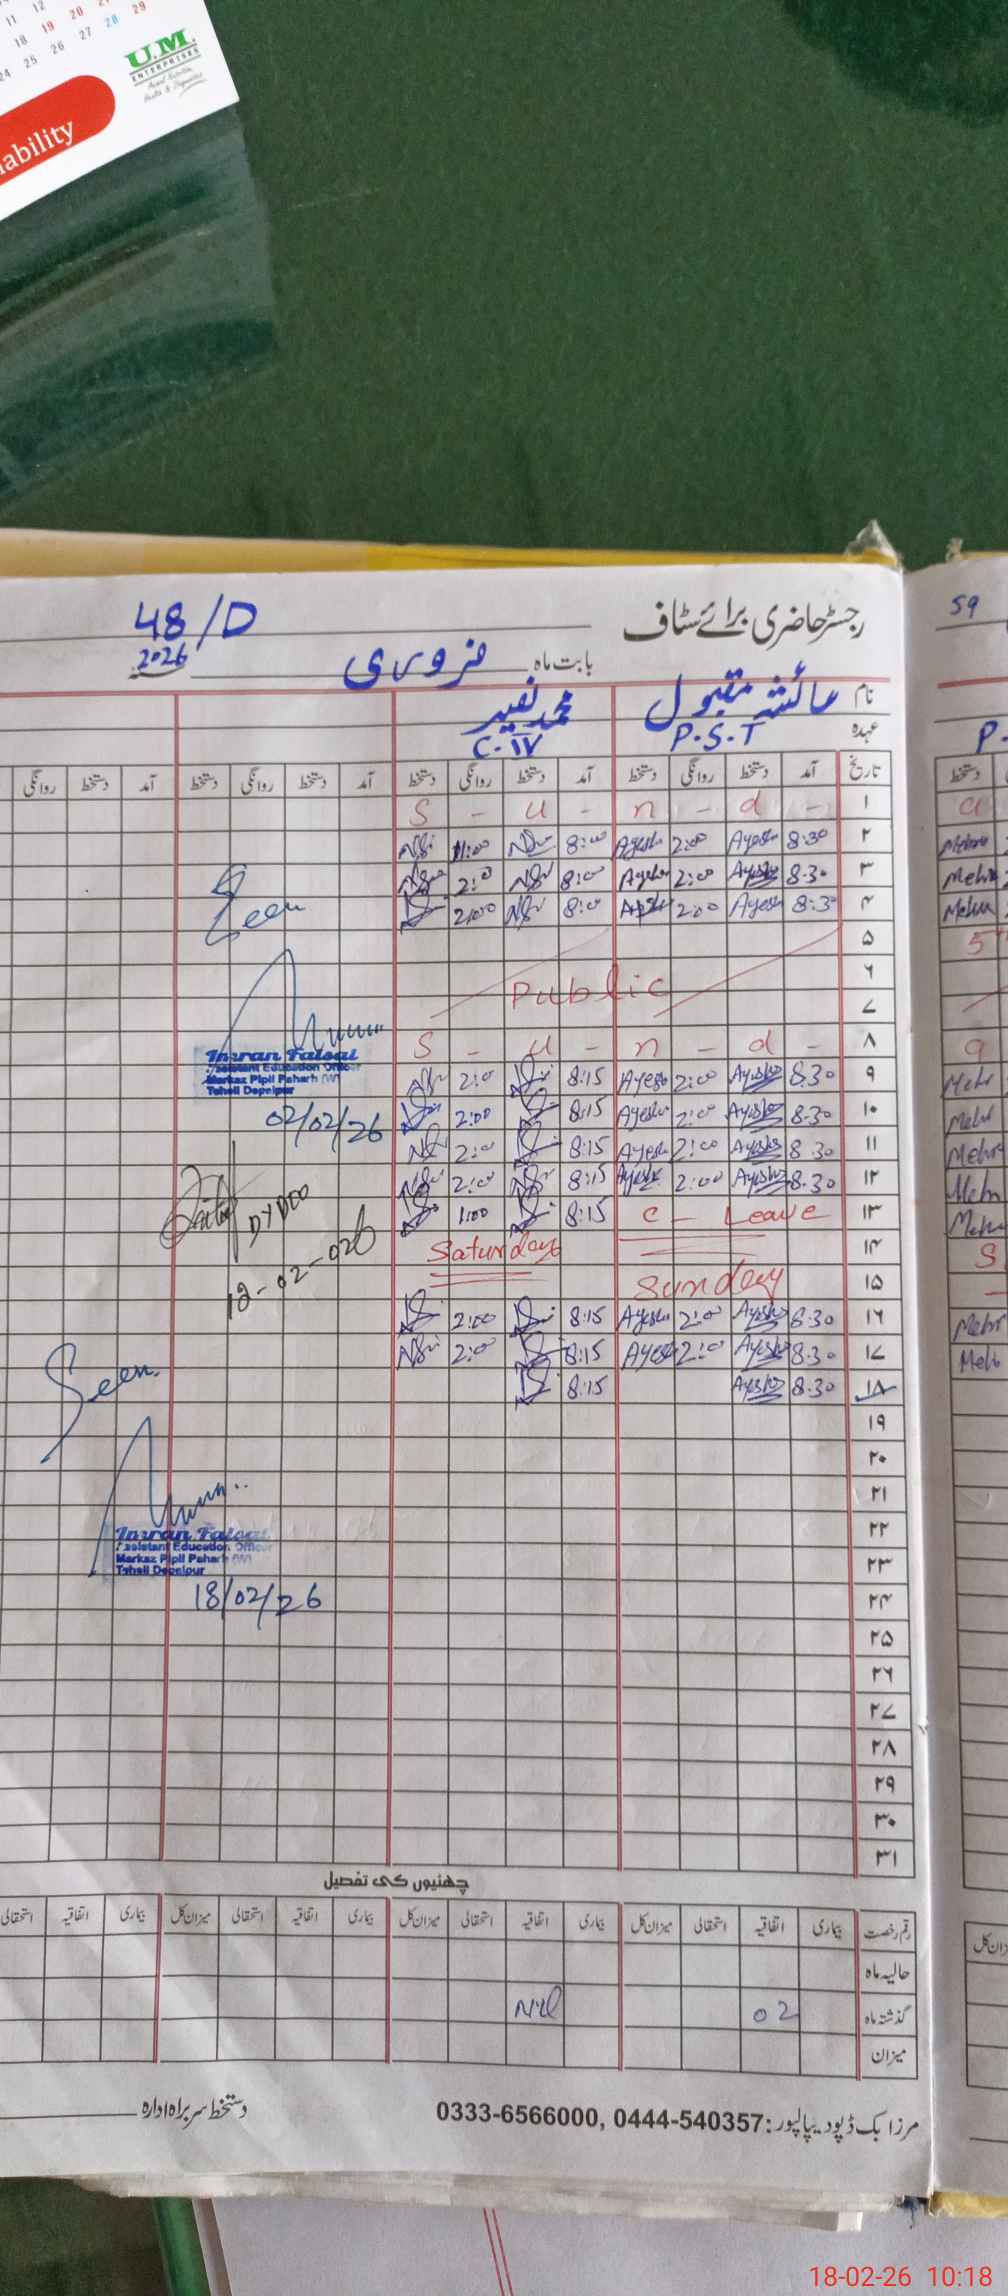 11 12
18 19 20 21 22
24 25 26 27 28 29
U.M.
ENTERPRISES
ability
59
48/D
رجسٹر حاضری برائے سٹاف
2026
بابت ماہ فروری
نام عائشہ مقبول محمد نصیر
عہدہ P.S.T C.IV
تاریخ آمد دستخط روانگی دستخط آمد دستخط روانگی دستخط آمد دستخط روانگی دستخط آمد دستخط روانگی
۱ S - u - n - d -
۲ 8:30 Ayesha 2:00 Ayesha 8:00 11:00
۳ 8:30 Ayesha 2:00 Ayesha 8:00 2:0
۴ 8:30 Ayesha 2:00 8:0 2:00
۵
۶ Public
۷
۸ S - u - n - d -
۹ 8:30 Ayesha 2:00 Ayesha 8:15 2:0
۱۰ 8:30 Ayesha 2:00 Ayesha 8:15 2:00
۱۱ 8:30 Ayesha 2:00 Ayesha 8:15 2:0
۱۲ 8:30 Ayesha 2:00 Ayesha 8:15 2:00
۱۳ C - Leave 8:15 1:00
۱۴ Saturday
۱۵ Sunday
۱۶ 8:30 Ayesha 2:00 Ayesha 8:15 2:00
۱۷ 8:30 Ayesha 2:00 Ayesha 8:15 2:0
۱۸ 8:30 Ayesha 8:15
۱۹
۲۰
۲۱
۲۲
۲۳
۲۴
۲۵
۲۶
۲۷
۲۸
۲۹
۳۰
۳۱
Seen
Imran Faisal
Assistant Education Officer
Markaz Pipli Paharh (W)
Tehsil Depalpur
02/02/26
DYDEO
12-02-026
Seen
Imran Faisal
Assistant Education Officer
Markaz Pipli Paharh (W)
Tehsil Depalpur
18/02/26
چھٹیوں کی تفصیل
رقم رخصت بیماری اتفاقیہ استحقاقی میزان کل بیماری اتفاقیہ استحقاقی میزان کل بیماری اتفاقیہ استحقاقی میزان کل بیماری اتفاقیہ استحقاقی
حالیہ ماہ
گذشتہ ماہ 02 Nil
میزان
دستخط سربراہ ادارہ
مرزا بک ڈپو دیپالپور: 0444-540357 ,0333-6566000
18-02-26 10:18